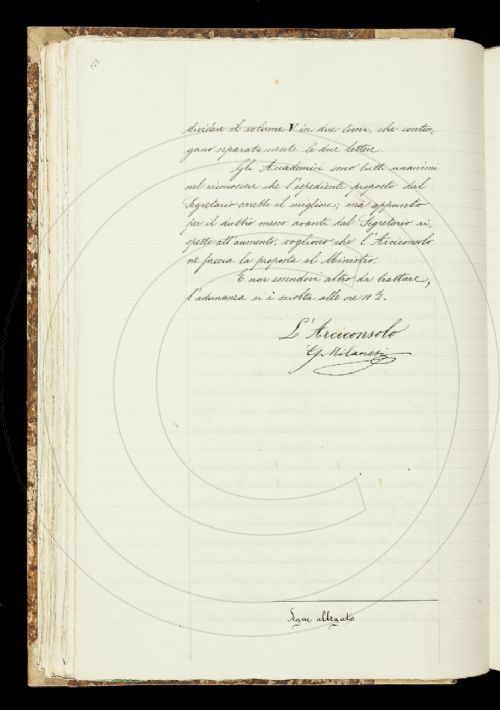 dividere il volume V in due tomi, che conten,
gano separatamente le due lettere.
Gli Accademici sono tutti unanimi
nel riconoscere che l'espediente proposto dal
Segretario sarebbe il migliore; ma appunto
per il dubbio messo avanti dal Segretario ri,
spetto all'aumento, vogliono che l'Arciconsolo
ne faccia la proposta al Ministro.
E non essendovi altro da trattare,
l'adunanza si è sciolta alle ore 11 ½.
L'Arciconsolo
G. Milanesi
Segue allegato